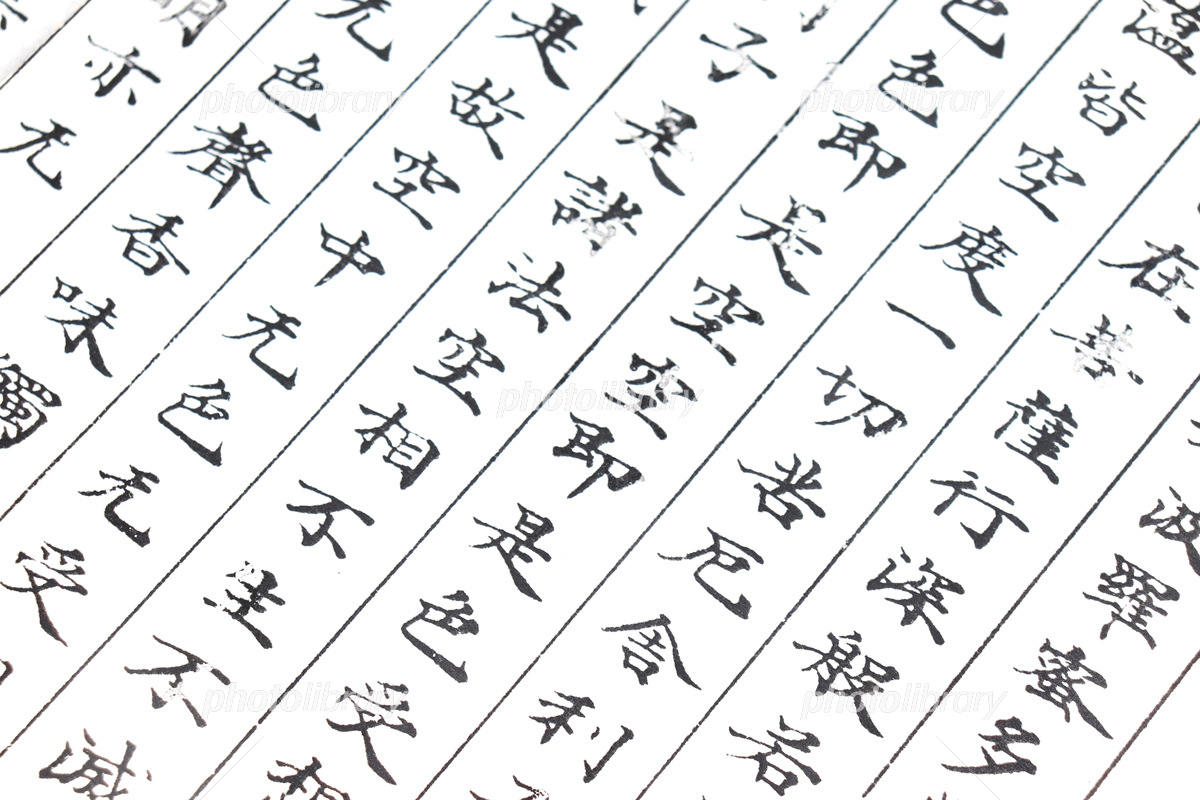 波羅蜜多
在菩薩行深般若
蘊皆空度一切苦厄舍利
色色即是空空即是色受想
子是諸法空相不生不滅
是故空中无色无受
无色聲香味觸
明亦无
photolibrary
photolibrary
photolibrary
photolibrary
photolibrary